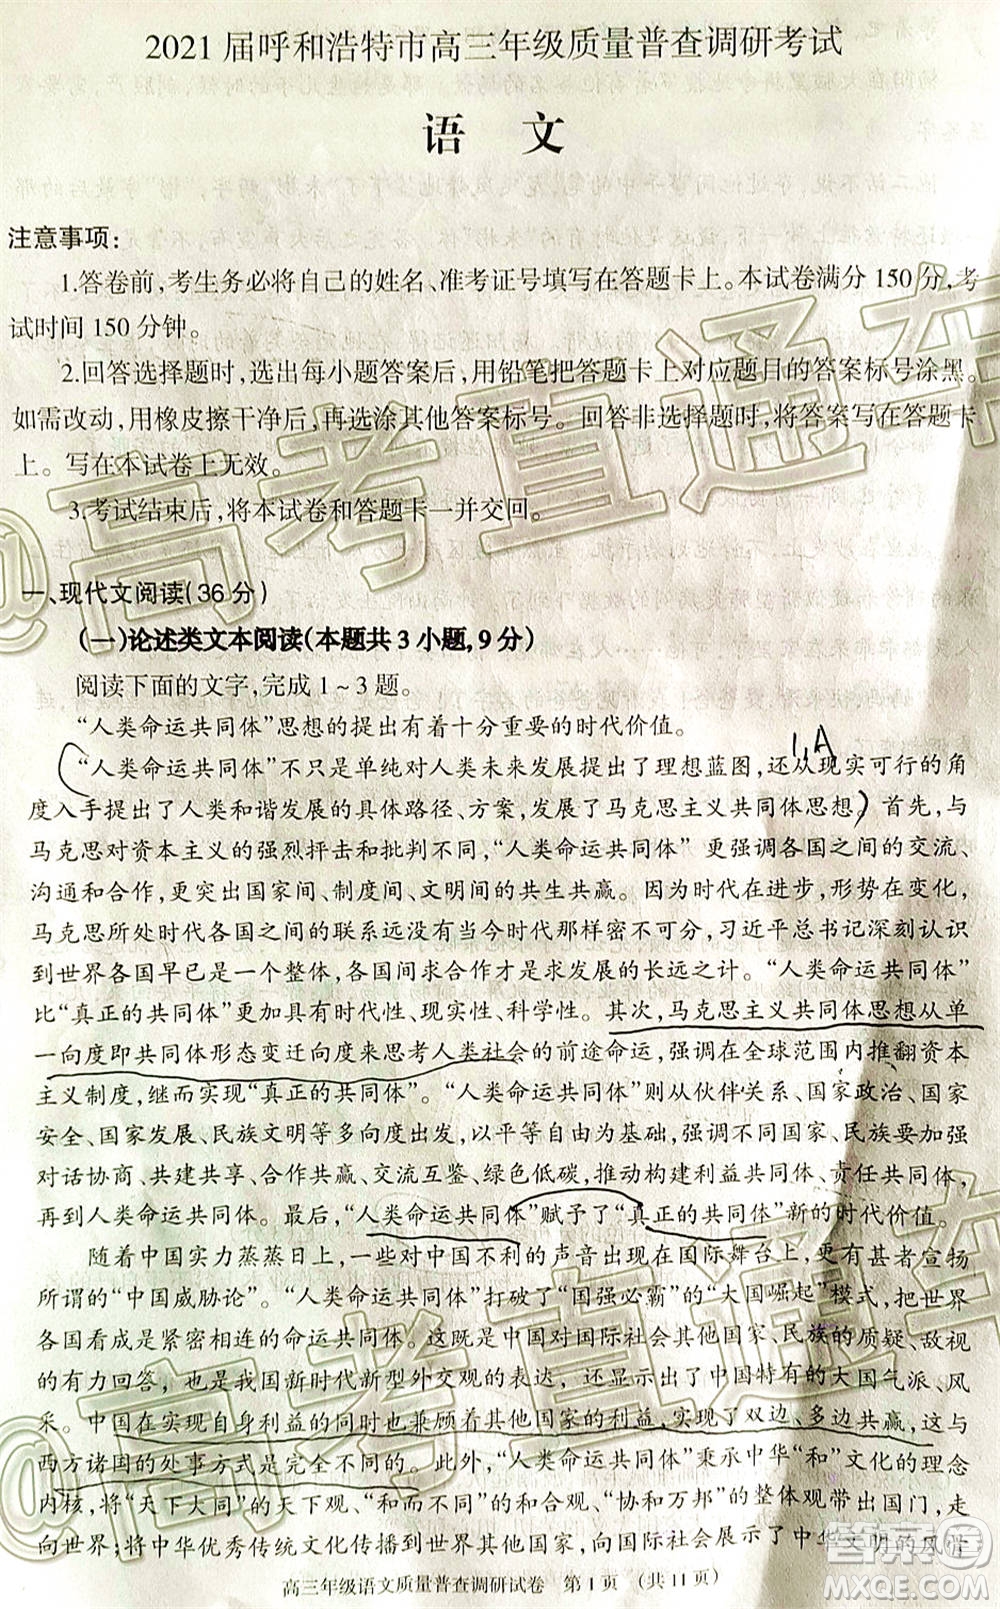 2021届呼和浩特市高三年级质量普查调研考试
语 文
注意事项:
1.答卷前,考生务必将自己的姓名、准考证号填写在答题卡上。本试卷满分150分,考
试时间150分钟。
2.回答选择题时,选出每小题答案后,用铅笔把答题卡上对应题目的答案标号涂黑。
如需改动,用橡皮擦干净后,再选涂其他答案标号。回答非选择题时,将答案写在答题卡
上。写在本试卷上无效。
3.考试结束后,将本试卷和答题卡一并交回。
一、现代文阅读(36分)
(一)论述类文本阅读(本题共3小题,9分)
阅读下面的文字,完成1~3题。
“人类命运共同体”思想的提出有着十分重要的时代价值。
1,A
“人类命运共同体”不只是单纯对人类未来发展提出了理想蓝图,还从现实可行的角
度入手提出了人类和谐发展的具体路径、方案,发展了马克思主义共同体思想。首先,与
马克思对资本主义的强烈抨击和批判不同,“人类命运共同体”更强调各国之间的交流、
沟通和合作,更突出国家间、制度间、文明间的共生共赢。因为时代在进步,形势在变化,
马克思所处时代各国之间的联系远没有当今时代那样密不可分,习近平总书记深入认识
到世界各国早已是一个整体,各国间求合作才是求发展的长远之计。“人类命运共同体”
比“真正的共同体”更具有时代性、现实性、科学性。其次,马克思主义共同体思想从单
一向度即共同体形态变迁向度来思考人类社会的前途命运,强调在全球范围内推翻资本
主义制度,继而实现“真正的共同体”。“人类命运共同体”则从伙伴关系、国家政治、国家
安全、国家发展、民族文明等多向度出发,以平等自由为基础,强调不同国家、民族要加强
对话协商、共建共享、合作共赢、交流互鉴、绿色低碳,推动构建利益共同体、责任共同体,
再到人类命运共同体。最后,“人类命运共同体”赋予了“真正的共同体”新的时代价值。
随着中国实力蒸蒸日上,一些对中国不利的声音出现在国际舞台上,更有甚者宣扬
所谓的“中国威胁论”。“人类命运共同体”打破了“国强必霸”的“大国崛起”模式,把世界
各国看成是紧密相连的命运共同体。这既是中国对国际社会其他国家、民族的质疑、敌视
的有力回答,也是我国新时代新型外交观的表达,还向世界展示了中国特有的大国气派、风
采。中国在实现自身利益的同时也兼顾着其他国家的利益,实现了双边、多边共赢,这与
西方诸国的处事方式是完全不同的。此外,“人类命运共同体”秉承中华“和”文化的理念
内核,将“天下大同”的天下观、“和而不同”的和合观、“协和万邦”的整体观带出国门,走
向世界;将中华优秀传统文化传播到世界其他国家,向国际社会展示了中华文明的风
高三年级语文质量普查调研试卷 第1页 (共11页)
@高考直通车
@高考直通车
答案圈
MXQE.COM